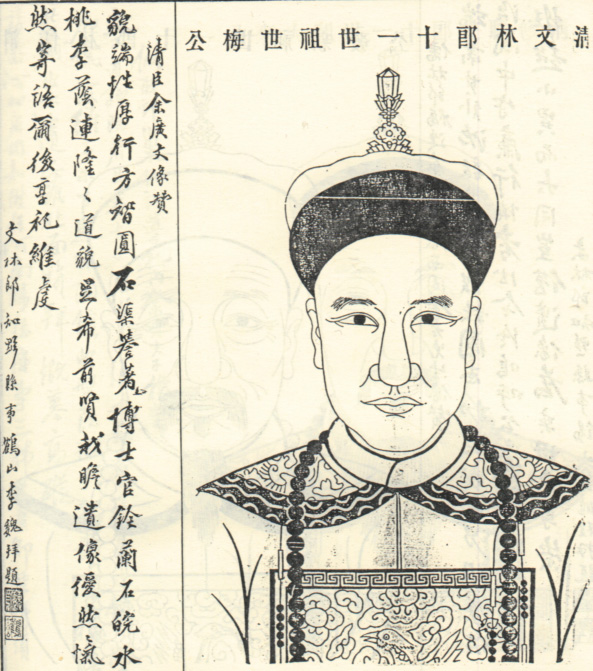 清文林郎十一世祖世梅公
清臣余廣文像贊
貌端性厚行方智圓石渠譽著博士官銓蘭石皖水
桃李蔭連隆〻道貌景希前賢載瞻遺像僾然愾
然寄語爾後享祀維虔
文林郎知黟縣事鶴山李魏拜題